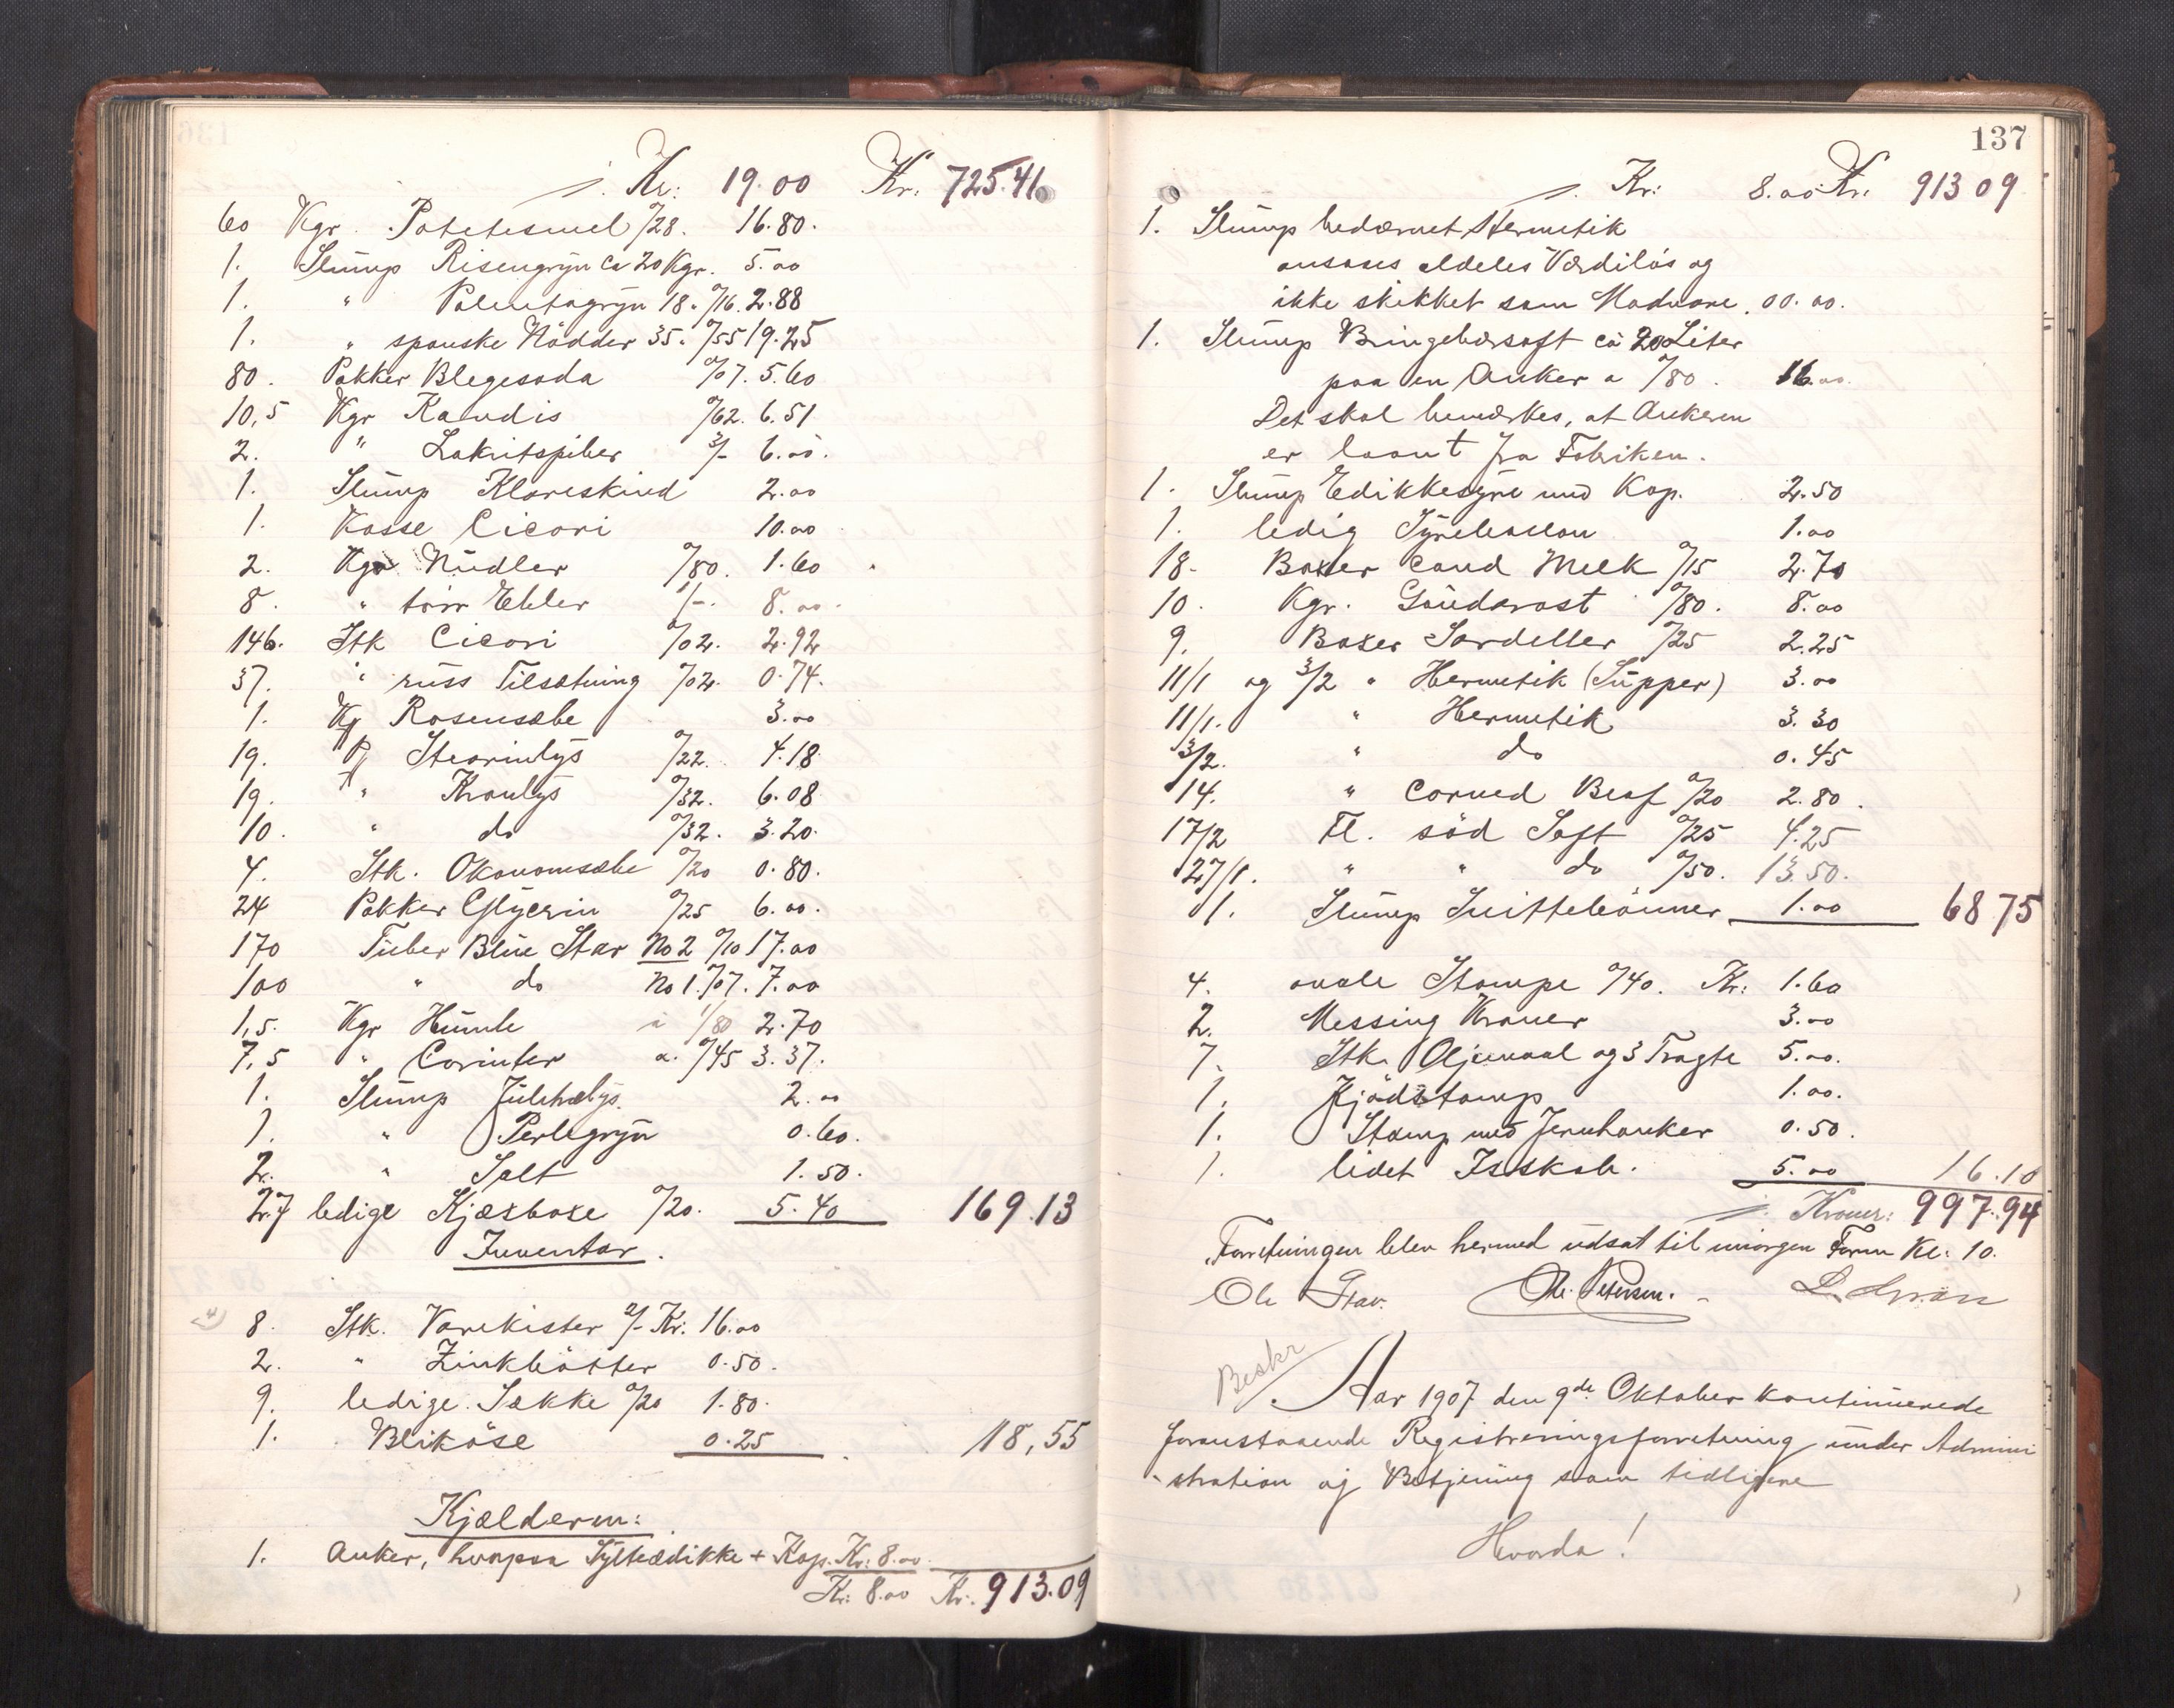 Kr: 19.00 Kr: 725.41
60 Kgr. Potetesmel %28. 16.80.
1. Slump Risengryn ca 20 Kgr. 5.00
1. " Polentagryn 18. %16. 2.88
1. " spanske Nödder 35. %55 19.25
80. Pakker Blegesoda %07. 5.60
10,5 Kgr Kandis %62. 6.51
2. " Lakritspiber 3/- 6.00.
1. Slump Klareskind 2.00
1. Kasse Cicori 10.00
2. Kgr Nudler %80. 1.60
8. " törr Ebler 1/-. 8.00.
146. Stk Cicori %02. 2.92
37. " russ Tilsætning %02. 0.74.
1. Kg Rosensæbe 3.00
19. Pk Stearinlys %22. 4.18
19. " Kronlys %32. 6.08
10. " do %32. 3.20.
4. Stk. Okonomsæbe %20 0.80.
24 Pakker Glycerin %25 6.00.
170 Tuber Blue Star No 2 %10 17.00
100 " do No 1. %07. 7.00
1,5. Kgr Humle a 1/80 2.70
7,5 " Corinter a. %45 3.37.
1. Slump Juletrælys. 2.00
1. " Perlegryn 0.60.
2. " Salt 1.50.
27 ledige Kjæxboxe %20. 5.40 169.13
Inventar.
8. Stk. Varekister 2/- Kr: 16.00
2. " Zinkbötter 0.50.
9. ledige Sække %20 1.80.
1. Bliköse 0.25 18,55
Kjælderen:
1. Anker, hvorpaa Sylteædikke + Kag. Kr: 8.00
Kr: 8.00 Kr. 913.09
137
Kr: 8.00 Kr: 913 09
1. Slump bedærvet Hermetik
ansaaes aldeles Værdilös og
ikke skikket som Madvare. 00.00.
1. Slump Bringebærsaft ca 20 Liter
paa en Anker a %80. 16.00.
Det skal bemærkes, at Ankeren
er laant fra Fabriken.
1. Slump Edikkesyre med Kag. 2.50
1. ledig Syreballon 1.00
18. Boxer Cond Melk %15 2.70
10. Kgr. Goudaost %80. 8.00
9. Boxer Sardeller %25 2.25
11/1 og 3/2 " Hermetik (Supper) 3.00
11/1. " Hermetik 3.30
3/2. " do 0.45
14. " Corned Beaf %20 2.80.
17/2 Fl. söd Saft %25 4.25
27/1. " " do %50. 13.50.
1. Slump Snittebönner 1.00 68 75
4. ovale Stampe %40. Kr: 1.60
2. Messing Kraner 3.00
7. Stk. Oljemaal og 3 Tragte 5.00.
1. Kjödstamp 1.00.
1. Stamp med Jernhanker 0.50.
1. lidet Isskab. 5.00 16.10
Kroner: 997.94
Forretningen blev hermed udsat til imorgen Form Kl: 10.
Ole Stav. Chr. Petersen.
Beskr
Aar 1907 den 9de Oktober kontinuerede
foranstaaende Registreringsforretning under Admini
stration og Betjening som tidligere
Hvorda!